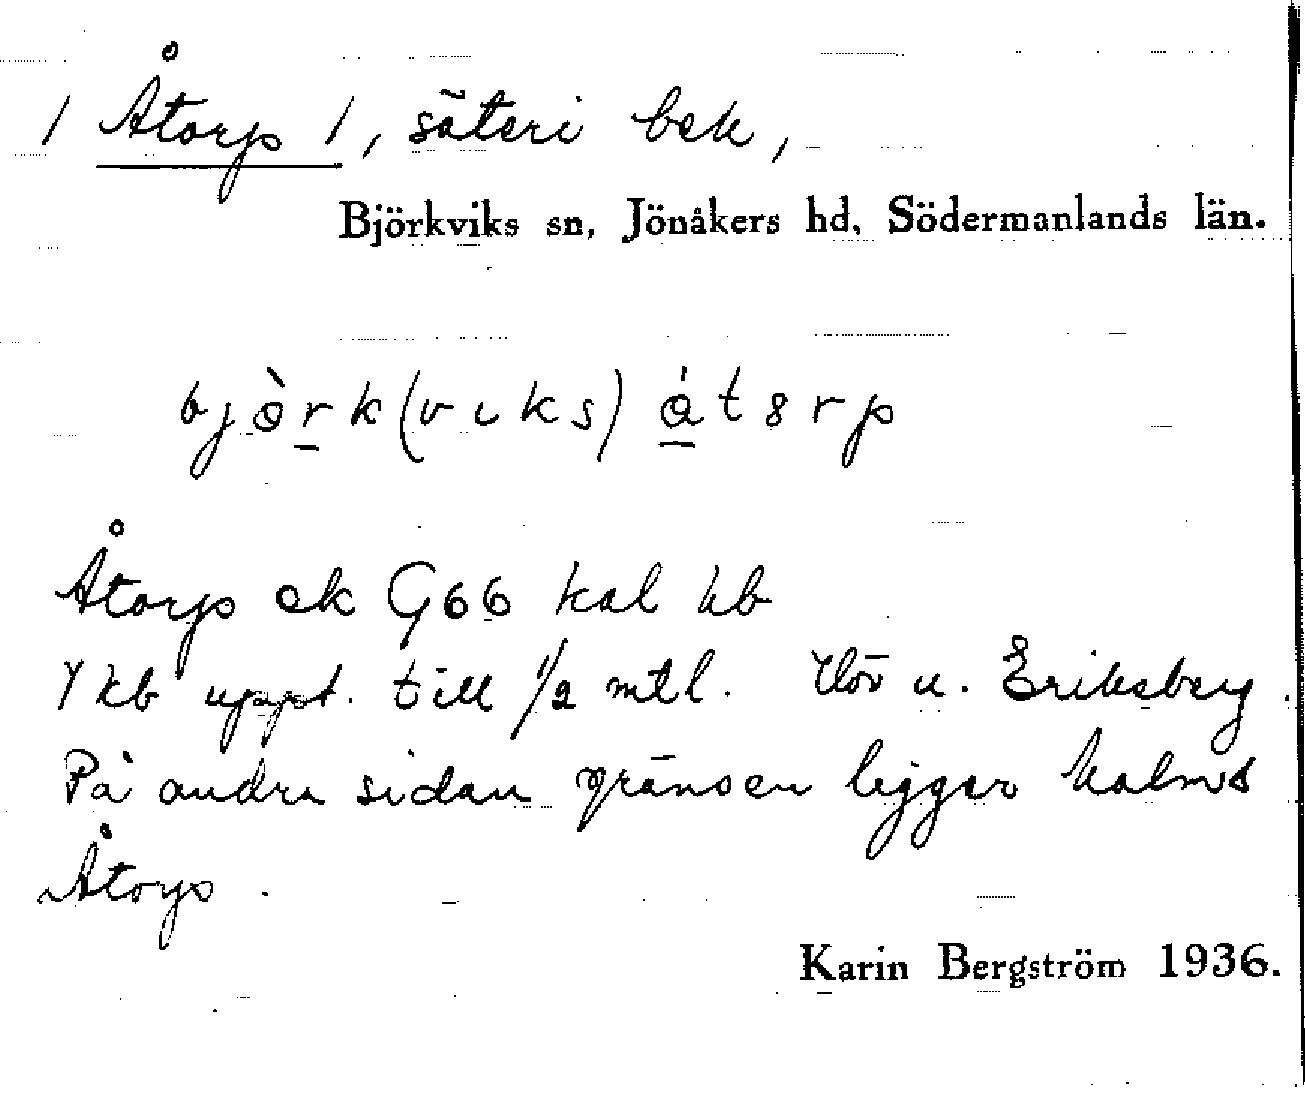 / Åtorp /, säteri bek,
Björkviks sn, Jönåkers hd, Södermanlands län.
bjòrk(vıks) átȣrp
Åtorp ek G66 kal kb
/ kb uppt. till 1/2 mtl. Hör u. Eriksberg.
På andra sidan gränsen ligger kalms
Åtorp.
Karin Bergström 1936.